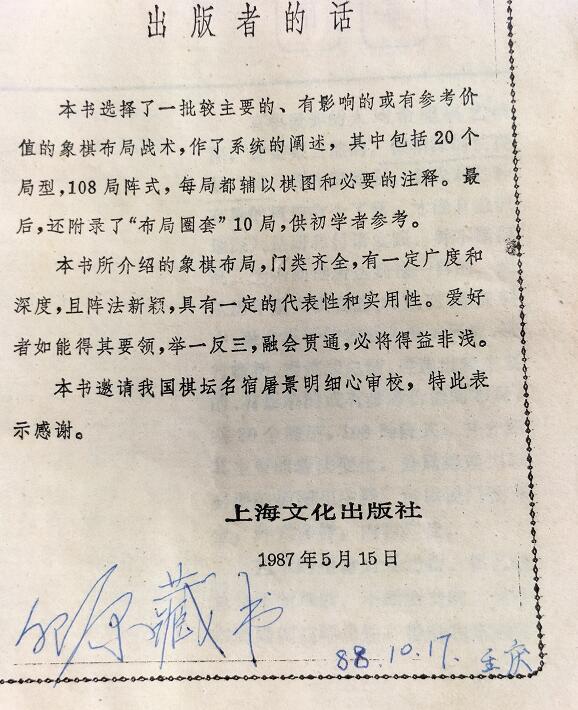 出版者的话
本书选择了一批较主要的、有影响的或有参考价
值的象棋布局战术,作了系统的阐述,其中包括20个
局型,108局阵式,每局都辅以棋图和必要的注释。最
后,还附录了“布局圈套”10局,供初学者参考。
本书所介绍的象棋布局,门类齐全,有一定广度和
深度,且阵法新颖,具有一定的代表性和实用性。爱好
者如能得其要领,举一反三,融会贯通,必将得益非浅。
本书邀请我国棋坛名宿屠景明细心审校,特此表
示感谢。
上海文化出版社
1987年5月15日
原藏书
88.10.17. 重庆